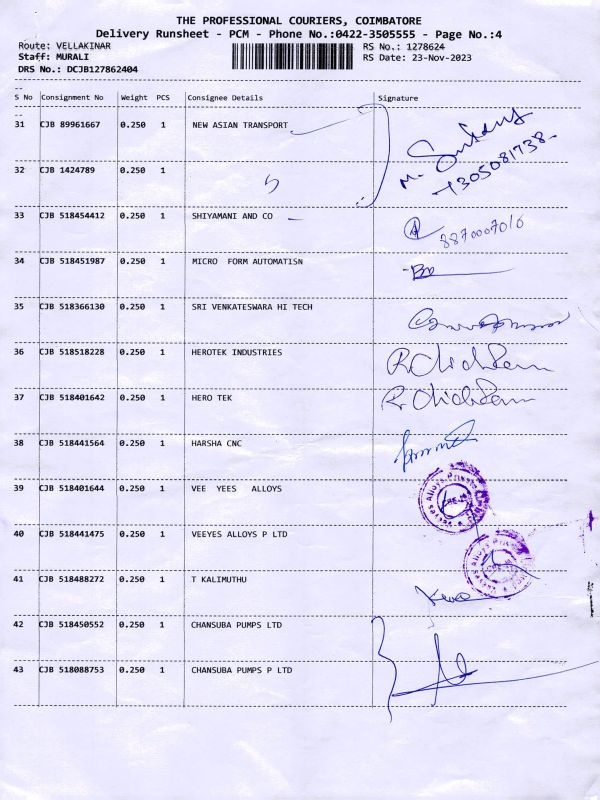 THE PROFESSIONAL COURIERS, COIMBATORE
Delivery Runsheet - PCM - Phone No.:0422-3505555 - Page No.:4
Route: VELLAKINAR RS No.: 1278624
Staff: MURALI RS Date: 23-Nov-2023
DRS No.: DCJB127862404
S No Consignment No Weight PCS Consignee Details Signature
31 CJB 89961667 0.250 1 NEW ASIAN TRANSPORT
32 CJB 1424789 0.250 1
33 CJB 518454412 0.250 1 SHIYAMANI AND CO 8870007016
34 CJB 518451987 0.250 1 MICRO FORM AUTOMATISN
35 CJB 518366130 0.250 1 SRI VENKATESWARA HI TECH
36 CJB 518518228 0.250 1 HEROTEK INDUSTRIES
37 CJB 518401642 0.250 1 HERO TEK
38 CJB 518441564 0.250 1 HARSHA CNC
39 CJB 518401644 0.250 1 VEE YEES ALLOYS
40 CJB 518441475 0.250 1 VEEYES ALLOYS P LTD
41 CJB 518488272 0.250 1 T KALIMUTHU
42 CJB 518450552 0.250 1 CHANSUBA PUMPS LTD
43 CJB 518088753 0.250 1 CHANSUBA PUMPS P LTD